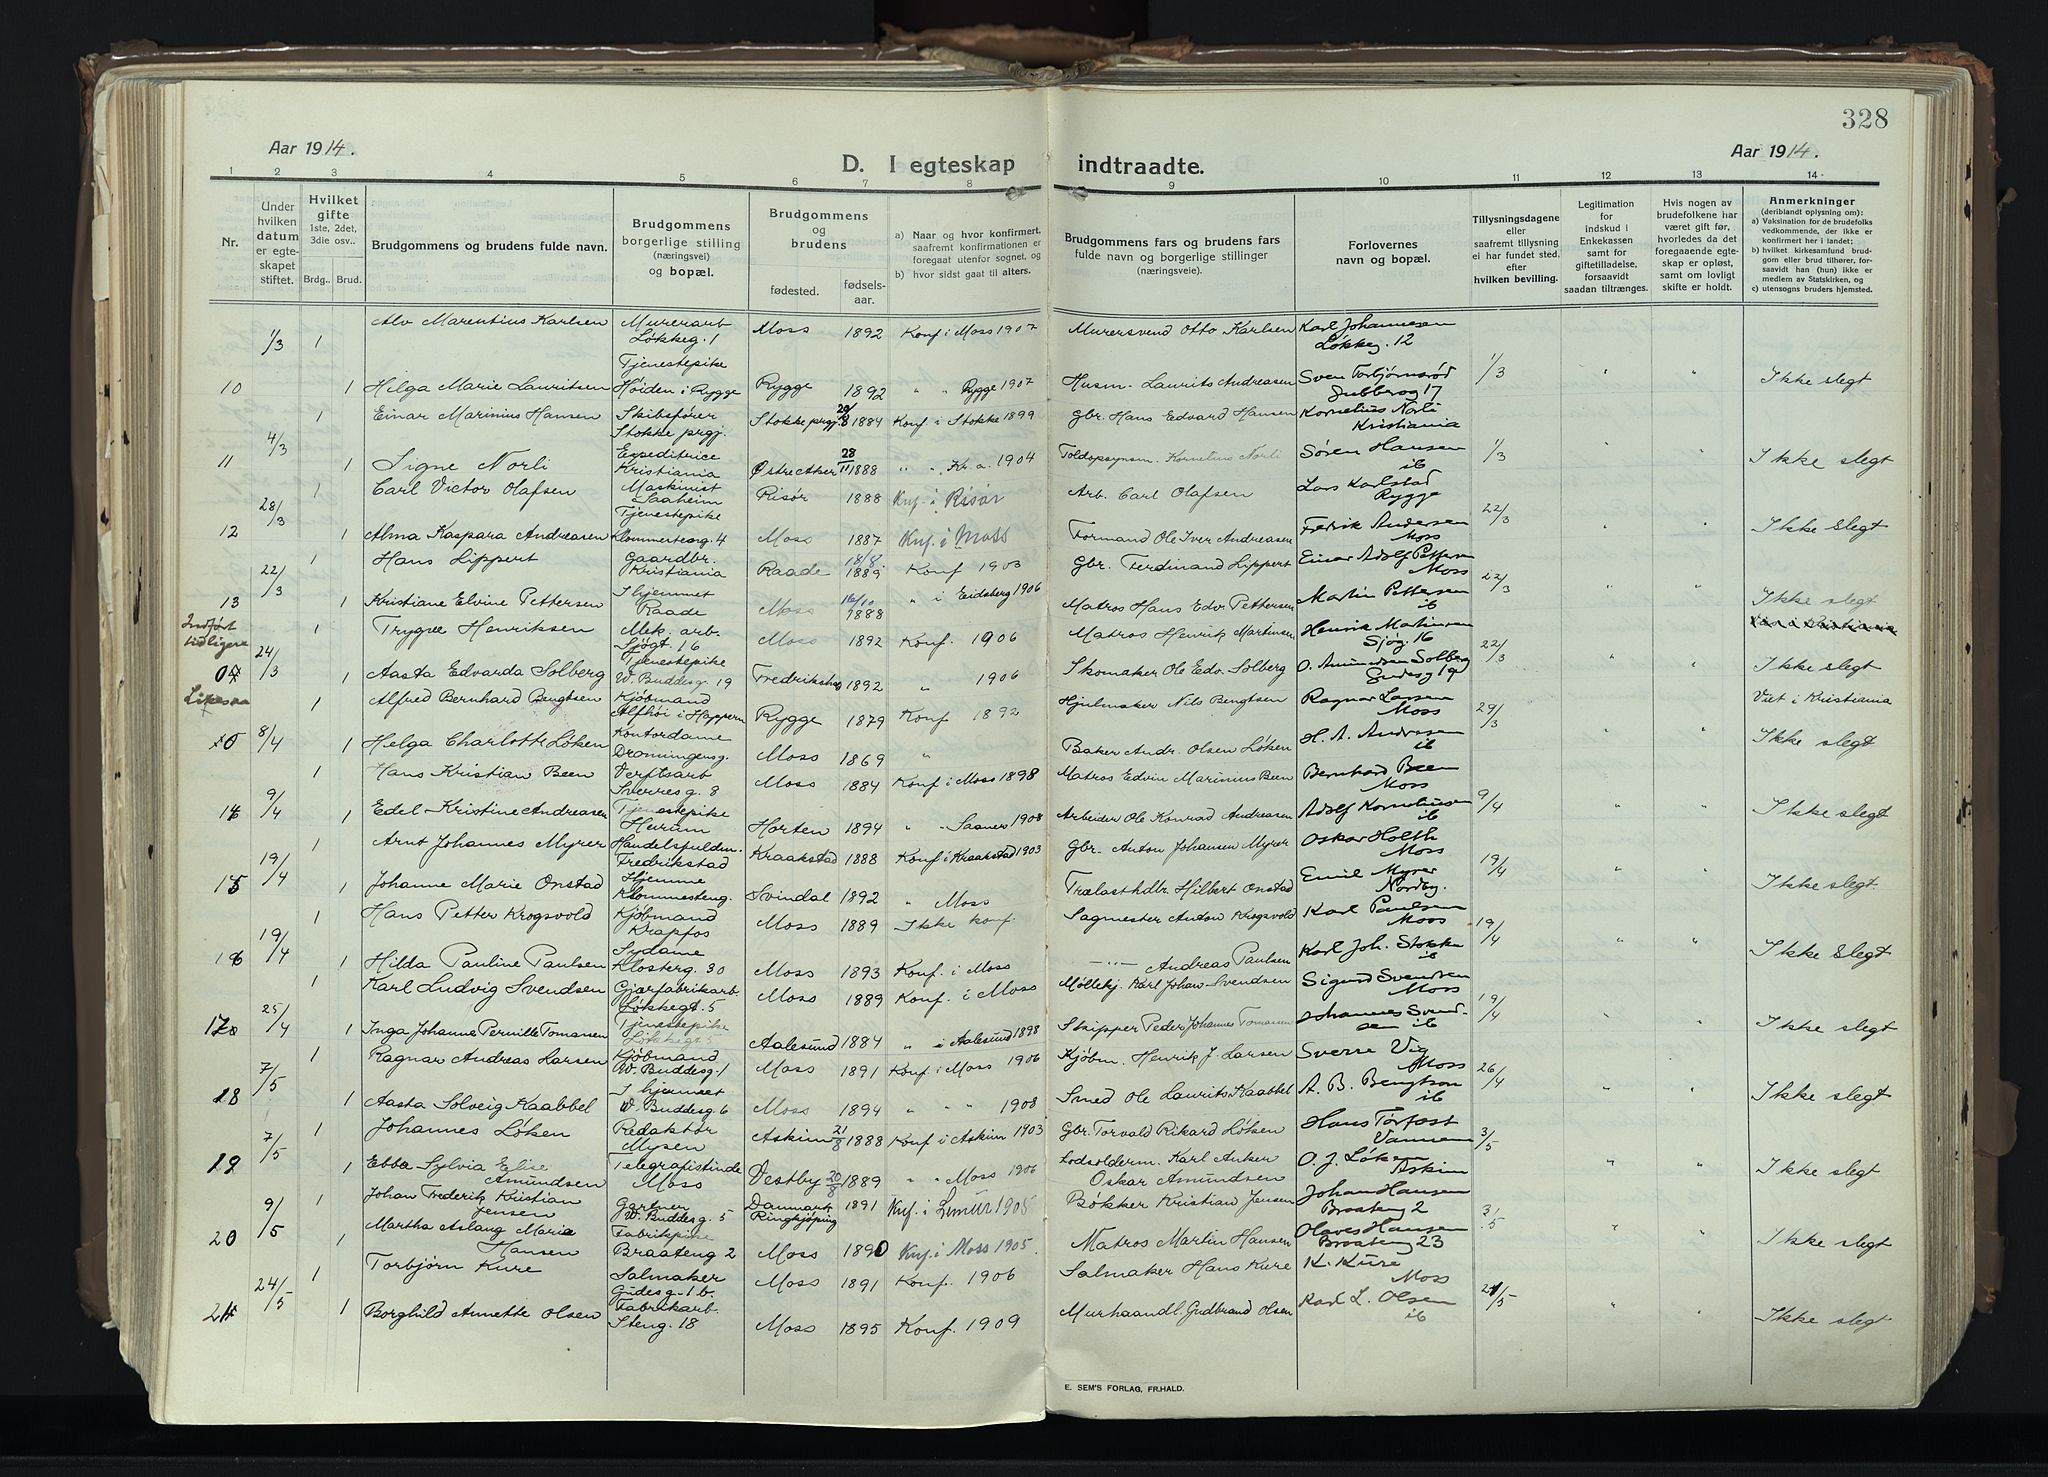 328
Aar 1914.
D. I egteskap indtraadte.
Aar 1914.
1 2 3 4 5 6 7 8 9 10 11 12 13 14
Nr.
Under hvilken datum er egteskapet stiftet.
Hvilket gifte 1ste, 2det, 3die osv..
Brdg.. Brud.
Brudgommens og brudens fulde navn.
Brudgommens borgerlige stilling (næringsvei) og bopæl.
Brudgommens og brudens
fødested. fødselsaar.
a) Naar og hvor konfirmert, saafremt konfirmationen er foregaat utenfor sognet, og
b) hvor sidst gaat til alters.
Brudgommens fars og brudens fars fulde navn og borgerlige stillinger (næringsveie).
Forlovernes navn og bopæl.
Tillysningsdagene eller saafremt tillysning ei har fundet sted. efter hvilken bevilling.
Legitimation for indskud i Enkekassen samt for giftetilladelse, forsaavidt saadan tiltrænges.
Hvis nogen av brudefolkene har været gift før, hvorledes da det foregaaende egteskap er opløst, samt om lovlig skifte er holdt.
Anmerkninger (deriblandt oplysning om):
a) Vaksination for brudefolks vedkommende, der ikke er konfirmert her i landet;
b) hvilket kirkesamfund brudgom eller brud tilhører, forsaavidt han (hun) ikke er medlem av Statskirken, og
c) utensogns bruders hjemsted.
1/3 1 Alv Marentius Karlsen Murerarb Løkkeg. 1 Moss 1892 Konf i Moss 1907 Murersvend Otto Karlsen Karl Johannesen Løkkeg. 12
10 1 Helga Marie Lauritsen Tjenestepike Høiden i Rygge Rygge 1892 " " Rygge 1907 Husm. Laurits Andreasen Sven Torbjørnsrød Gubberog 17 1/3 " " Ikke slegt
4/3 1 Einar Marinius Hansen Skibsfører Stokke prgj. Stokke prgj. 1884 Konf. i Stokke 1899 Gbr. Hans Edvard Hansen Kornelius Norli Kristiania
11 1 Signe Norli Expeditrice Kristiania Østre Aker 28/11 1888 " " Kr.a. 1904 Toldopsynsm. Kornelius Norli Søren Hansen ib 1/3 " " Ikke slegt
28/3 1 Carl Victor Olafsen Maskinist Saaheim Risør 1888 Knf. i Risør Arb. Carl Olafsen Lars Karlstad Rygge
12 1 Alma Kaspara Andreasen Tjenestepike Klommesteng. 4 Moss 1887 Knf. i Moss Formand Ole Iver Andreasen Fredrik Andersen Moss 22/3 " " Ikke slegt
22/3 1 Hans Lippert Gaardbr. Kristiania Raade 18/8 1889 Konf 1903 Gbr. Ferdinand Lippert Einar Adolf Pettersen Moss
13 1 Kristiane Elvine Pettersen I hjemmet Raade Moss 16/10 1888 " i Eidsberg 1906 Matros Hans Edv. Pettersen Martin Pettersen ib 22/3 " " Ikke slegt
Indført tidligere
24/3 1 Trygve Henriksen Mek. arb. Sjøgt 16 Moss 1892 Konf. 1906 Matros Henrik Martinsen Henrik Martinsen Sjøg. 16
04 1 Aasta Edvarda Solberg Tjenestepike W. Buddesg. 19 Fredrikshald 1892 " 1906 Skomaker Ole Edv. Solberg O. Amundsen Solberg Gudesg 19 22/3 " " Ikke slegt
8/4 1 Alfred Bernhard Bengtsen Kjøbmand Alfhøi i Høppern Rygge 1879 Konf 1892 Hjulmaker Nils Bengtsen Ragnar Larsen Moss Viet i Kristiania
1 Helga Charlotte Løken Kontordame Dronningensg. Moss 1869 " Baker Andr. Olsen Løken H. A. Andersen ib 29/3 " " Ikke slegt
9/4 1 Hans Kristian Been Verftsarb Sverresg. 8 Moss 1884 Konf i Moss 1898 Matros Edvin Marinius Been Bernhard Been Moss
14 1 Edel Kristine Andreasen Tjenestepike Horten 1894 " " Saaner 1908 Arbeider Ole Konrad Andreasen Adolf Korneliussen ib 9/4 " " Ikke slegt
19/4 1 Arnt Johannes Myrer Handelsfuldm. Fredrikstad Kraakstad 1888 Konf i Kraakstad 1903 Gbr. Anton Johansen Myrer Oskar Holth Moss
15 1 Johanne Marie Onstad Hjemme Klommesteng. Svindal 1892 " Moss Trælasthdlr. Hilbert Onstad Emil Myrer Nordby. 19/4 " " Ikke slegt
19/4 1 Hans Petter Krogsvold Kjøbmand Krapfos Moss 1889 Ikke konf. Sagmester Anton Krogsvold Karl Paulsen Moss
16 1 Hilda Pauline Paulsen Sydame Klosterg. 30 Moss 1893 Konf. i Moss —"— Andreas Paulsen Karl Joh. Stokke ib 19/4 " " Ikke slegt
25/4 1 Karl Ludvig Svendsen Gjærfabrikarb. Løkkegt. 5 Moss 1889 Konf. i Moss Møllekj. Karl Johan Svendsen Sigurd Svendsen Moss
17 1 Inga Johanne Pernille Tomasen Tjenestepike Løkkegt 5 Aalesund 1884 " i Aalesund 1898 Skipper Peder Johannes Tomasen Johannes Svendsen ib 19/4 " " Ikke slegt
7/5 1 Ragnar Andreas Larsen Kjøbmand W. Buddesg. 1 Moss 1891 Konf. i Moss 1906 Kjøbm. Henrik J. Larsen Sverre Vig Moss
18 1 Aasta Solveig Kaabbel I hjemmet W. Buddesg. 6 Moss 1894 " " " 1908 Smed Ole Laurits Kaabbel A. B. Bengtson ib 26/4 " " Ikke slegt
7/5 1 Johannes Løken Redaktør Mysen Askim 21/8 1888 Konf i Askim 1903 Gbr. Torvald Rikard Løken Hans Torfast Vannem
19 1 Ebba Sylvia Elise Amundsen Telegrafistinde Moss Vestby 20/8 1889 " " Moss 1906 Lodsolderm. Karl Anker Oskar Amundsen O. J. Løken Askim 3/5 " " Ikke slegt
9/5 1 Johan Frederik Kristian Jensen Gartner W. Buddesg. 5 Danmark Ringkjøping 1891 Knf. i Lemur 1905 Bøkker Kristian Jensen Johan Hansen Braateng 2
20 1 Martha Aslaug Marie Hansen Fabrikpike Braateng 2 Moss 1890 Knf. i Moss 1905. Matros Martin Hansen Olaves Hansen Braateng 23 3/5 " " Ikke slegt
24/5 1 Torbjørn Kure Salmaker Gudesg. 1 b. Moss 1891 Konf. 1906 Salmaker Hans Kure K. Kure Moss
21 1 Borghild Annette Olsen Fabrikarb. Steng. 18 Moss 1895 Konf. 1909 Murhaandl. Gudbrand Olsen Karl L. Olsen ib 21/5 " " Ikke slegt
E. SEM'S FORLAG, FR.HALD.